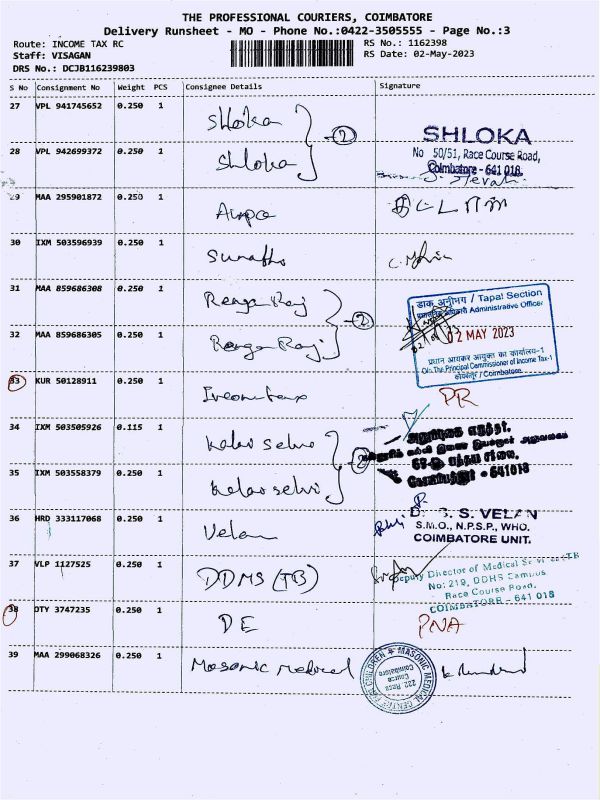 THE PROFESSIONAL COURIERS, COIMBATORE
Delivery Runsheet - MO - Phone No.:0422-3505555 - Page No.:3
Route: INCOME TAX RC
RS No.: 1162398
Staff: VISAGAN
RS Date: 02-May-2023
DRS No.: DCJB116239803
S No Consignment No Weight PCS Consignee Details Signature
27 VPL 941745652 0.250 1 Shloka
2
SHLOKA
No 50/51, Race Course Road,
Coimbatore - 641 018.
28 VPL 942699372 0.250 1 Shloka
29 MAA 295901872 0.250 1
30 IXM 503596939 0.250 1
31 MAA 859686308 0.250 1 Ranga Raj
2
डाक अनुभाग / Tapal Section
Administrative Officer
02 MAY 2023
प्रधान आयकर आयुक्त का कार्यालय-1
O/o.The Principal Commissioner of Income Tax-1
कोयंबतूर / Coimbatore
32 MAA 859686305 0.250 1 Ranga Raj
33 KUR 50128911 0.250 1 Incometax PR
34 IXM 503505926 0.115 1 Kalai selvi
2
641018
35 IXM 503558379 0.250 1 Kalai selvi
36 HRD 333117068 0.250 1 Velan
S. VELAN
S.M.O., N.P.S.P., WHO.
COIMBATORE UNIT.
37 VLP 1127525 0.250 1 DDMS (TB)
Deputy Director of Medical Services (TB
No: 219, DDHS Campus
Race Course Road,
COIMBATORE - 641 018
38 DTY 3747235 0.250 1 DE PNA
39 MAA 299068326 0.250 1 Masonic Medical
MASONIC MEDICAL CENTRE FOR CHILDREN
232, Race
Course
Coimbatore